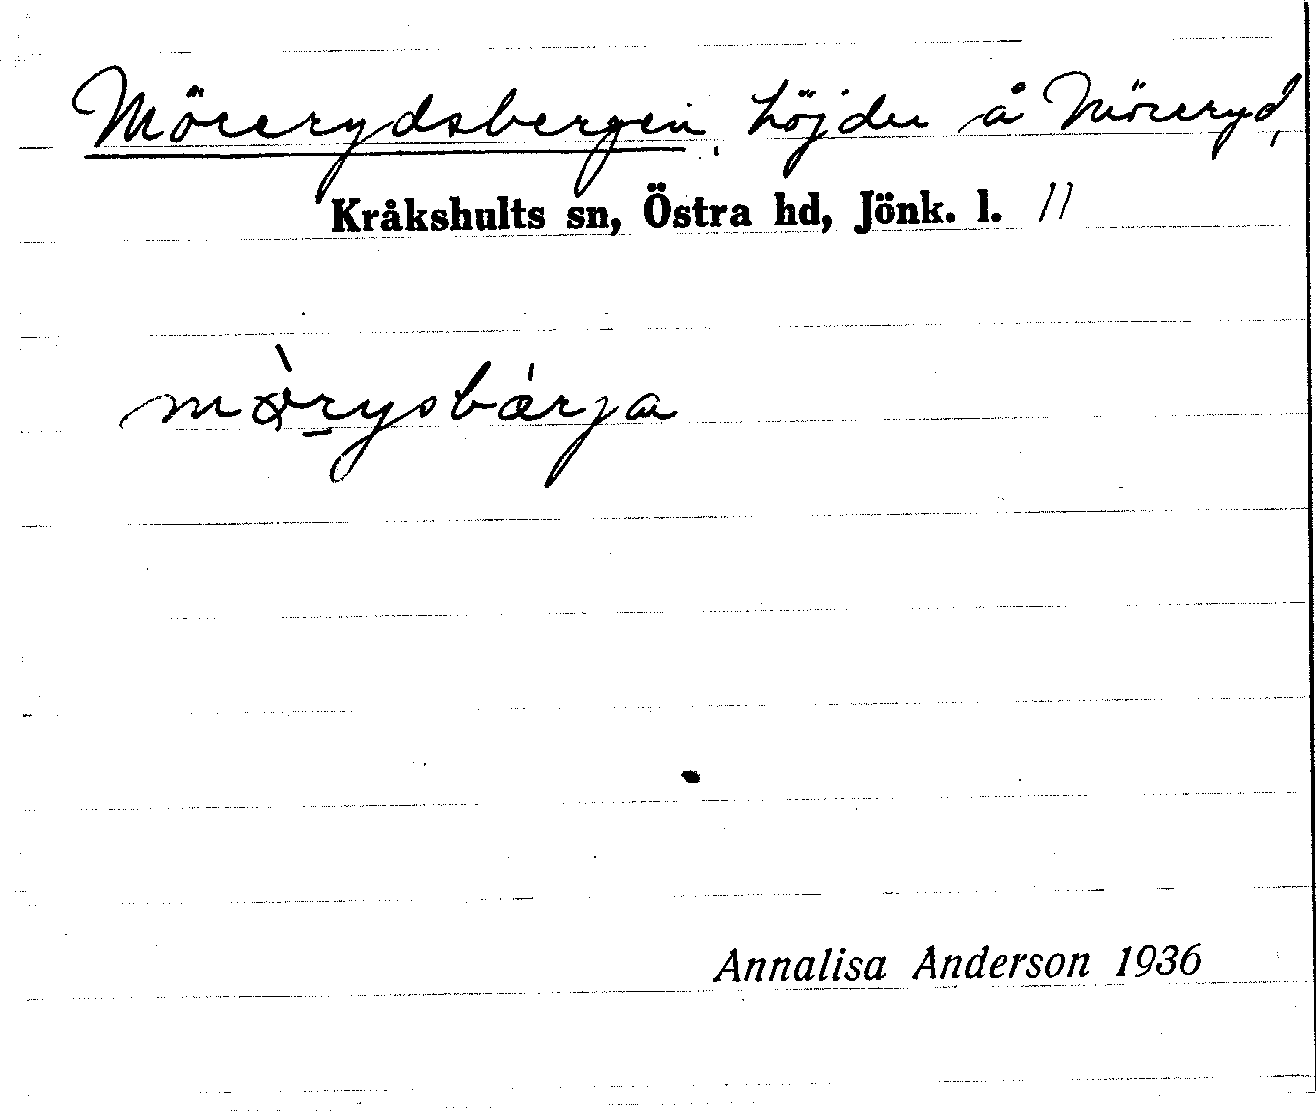 Mörerydsbergen, höjder å Möreryd,
Kråkshults sn, Östra hd, Jönk. l. 11
Annalisa Anderson 1936